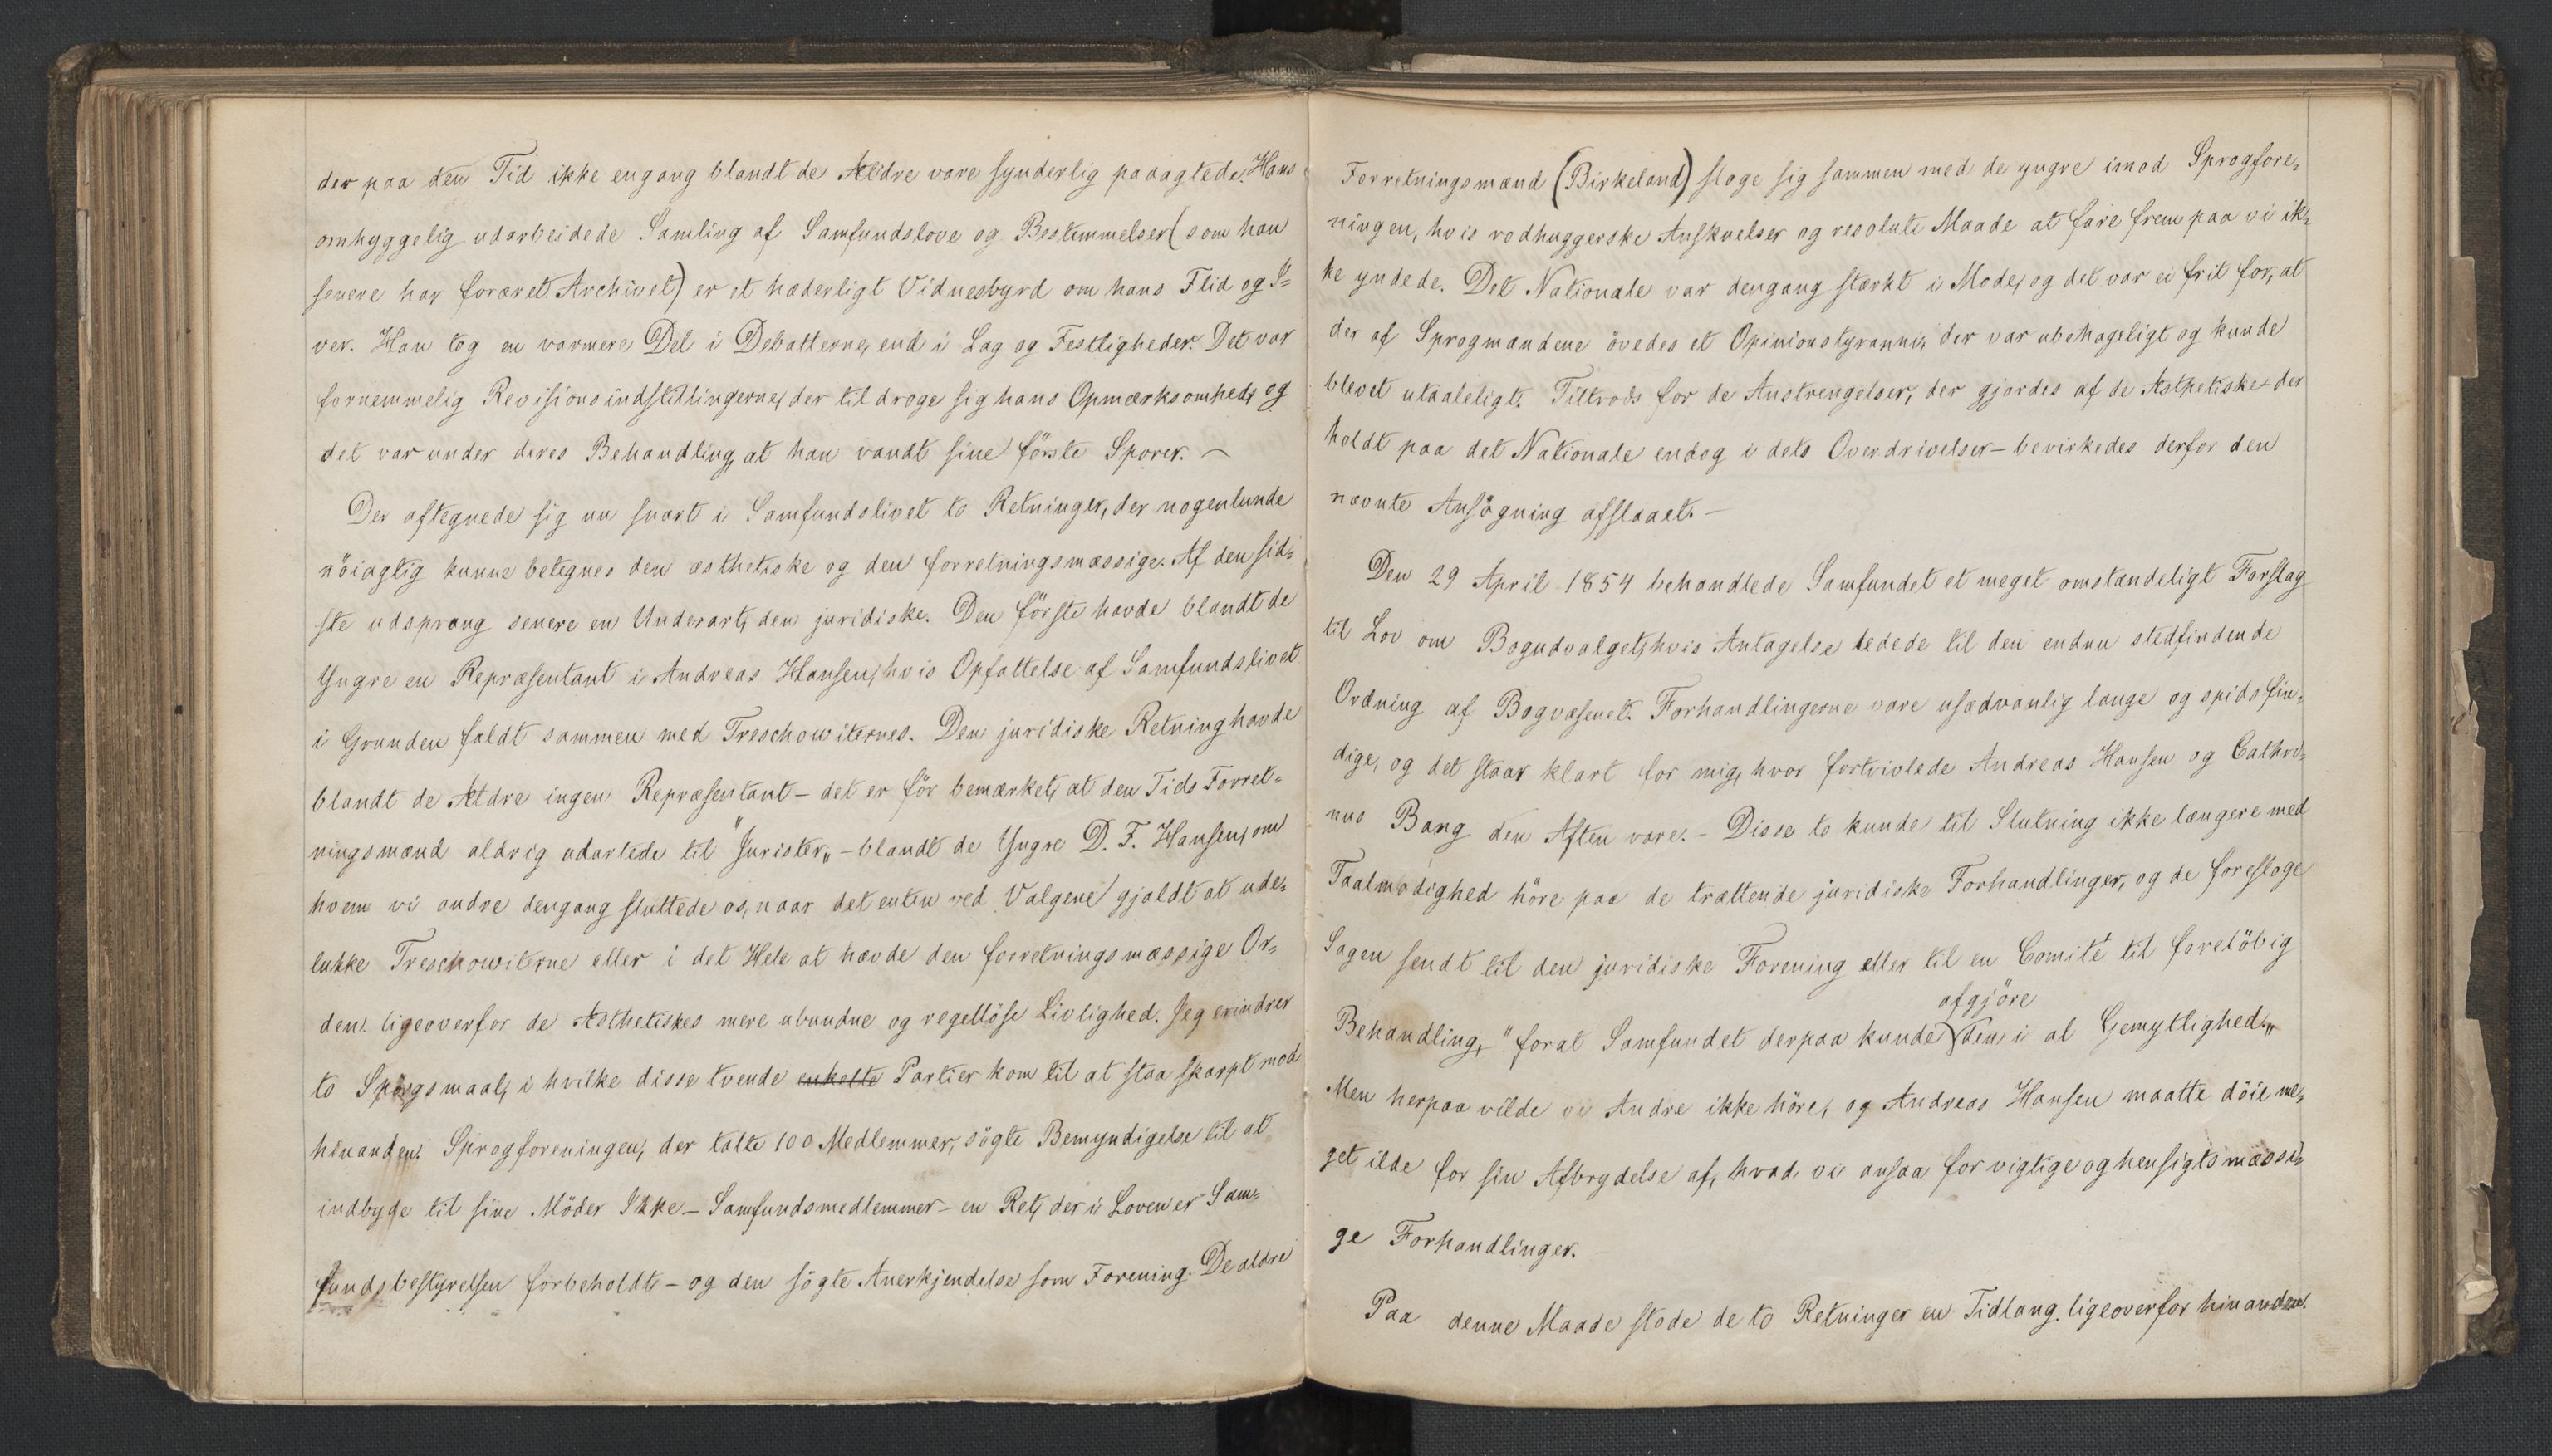 der paa den Tid ikke engang blandt de Ældre vare synderlig paaagtede. Hans
omhyggelig udarbeidede Samling af Samfundslove og Bestemmelser (som han
senere har foræret Archivet) er et hæderligt Vidnesbyrd om hans Flid og I-
ver. Han tog en varmere Del i Debatterne, end i Lag og Festligheder. Det var
fornemmelig Revisionsindstillingerne, der tildroge sig hans Opmærksomhed, og
det var under deres Behandling, at han vandt sine første Sporer. –
Der aftegnede sig nu snart i Samfundslivet to Retninger, der nogenlunde
nöiagtig kunne betegnes den æsthetiske og den forretningsmæssige. Af den sid-
ste udsprang senere en Underart, den juridiske. Den förste havde blandt de
Yngre en Repræsentant i Andreas Hansen, hvis Opfattelse af Samfundslivet
i Grunden faldt sammen med Treschowiternes. Den juridiske Retning havde
blandt de Ældre ingen Repræsentant – det er för bemærket, at den Tids Forret-
ningsmænd aldrig udartede til "Jurister„ – blandt de Yngre D. F. Hansen, om
hvem vi andre dengang sluttede os, naar det enten ved Valgene gjaldt at ude-
lukke Treschowiterne eller i det Hele at hævde den forretningsmæssige Or-
den ligeoverfor de Æsthetiskes mere ubundne og regellöse Livlighed. Jeg erindrer
to Spörgsmaal, i hvilke disse tvende enkelte Partier kom til at staa skarpt mod
hinanden. Sprogforeningen, der talte 100 Medlemmer, sögte Bemyndigelse til at
indbyde til sine Möder Ikke-Samfundsmedlemmer – en Ret, der i Loven er Sam-
fundsbestyrelsen forbeholdt – og den sögte Anerkjendelse som Forening. De ældre
Forretningsmænd (Birkeland) sloge sig sammen med de yngre imod Sprogfore-
ningen, hvis rodhuggerske Anskuelser og resolute Maade at fare frem paa vi ik-
ke yndede. Det Nationale var dengang stærkt i Mode, og det var ei frit for, at
der af Sprogmændene övedes et Opinionstyranni, der var ubehageligt og kunde
blevet utaaleligt. Tiltrods for de Anstrengelser, der gjordes af de Æsthetiske – der
holdt paa det Nationale endog i dets Overdrivelser – bevirkedes derfor den
nævnte Ansögning afslaaet. –
Den 29 April 1854 behandlede Samfundet et meget omstændeligt Forslag
til Lov om Bogudvalget, hvis Antagelse ledede til den endnu stedfindende
Ordning af Bogvæsenet. Forhandlingerne vare usædvanlig lange og spidsfin-
dige, og det staar klart for mig, hvor fortvivlede Andreas Hansen og Cathri-
nus Bang den Aften vare. – Disse to kunde til Slutning ikke længere med
Taalmodighed höre paa de trættende juridiske Forhandlinger, og de foresloge
Sagen sendt til den juridiske Forening eller til en Comité til forelöbig
afgjöre
Behandling, "forat Samfundet derpaa kunde den i al Gemytlighed.„
Men herpaa vilde vi Andre ikke höre, og Andreas Hansen maatte döie me-
get ilde for sin Afbrydelse af, hvad vi ansaa for vigtige og hensigtsmæssi-
ge Forhandlinger.
Paa denne Maade stode de to Retninger en Tidlang ligeoverfor hinanden.